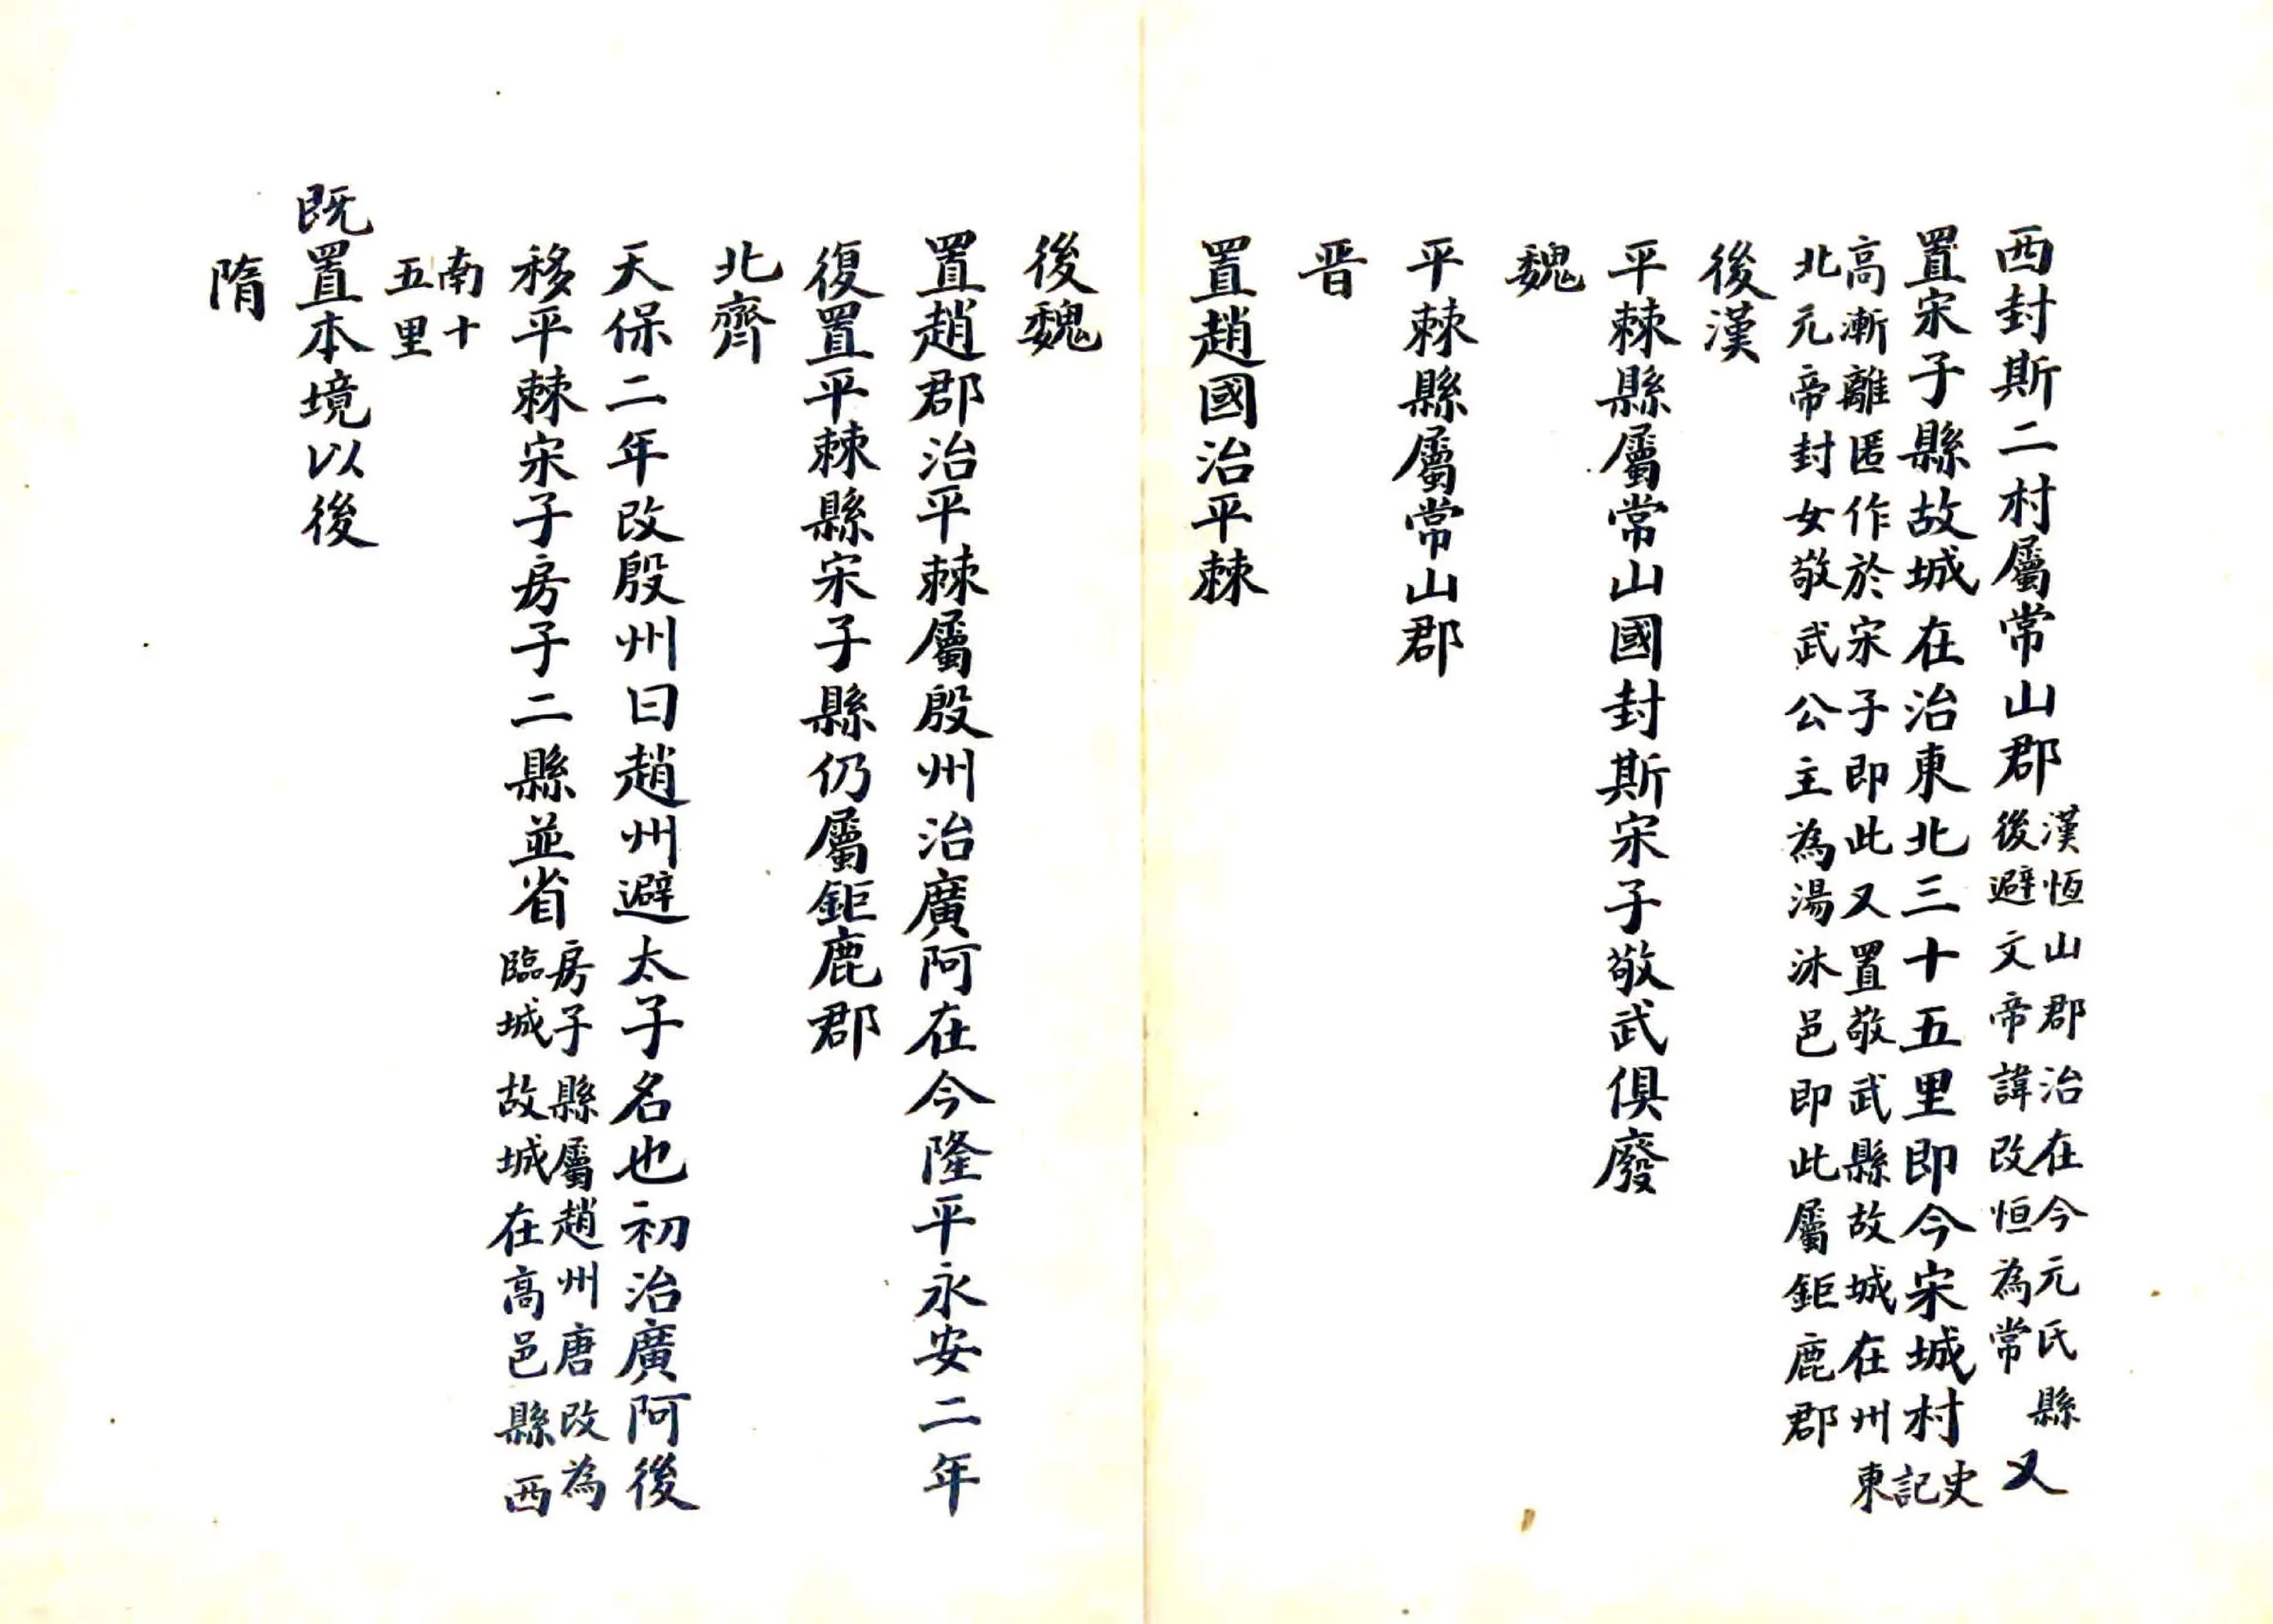 西封斯二村屬常山郡漢恆山郡治在今元氏縣後避文帝諱改恒為常又
置宋子縣故城在治東北三十五里即今宋城村史記
高漸離匿作於宋子即此又置敬武縣故城在州東
北元帝封女敬武公主為湯沐邑即此屬鉅鹿郡
後漢
平棘縣屬常山國封斯宋子敬武俱廢
魏
平棘縣屬常山郡
晋
置趙國治平棘
後魏
置趙郡治平棘屬殷州治廣阿在今隆平永安二年
復置平棘縣宋子縣仍屬鉅鹿郡
北齊
天保二年改殷州曰趙州避太子名也初治廣阿後
移平棘宋子房子二縣並省房子縣屬趙州唐改為臨城故城在高邑縣西
南十
五里
既置本境以後
隋